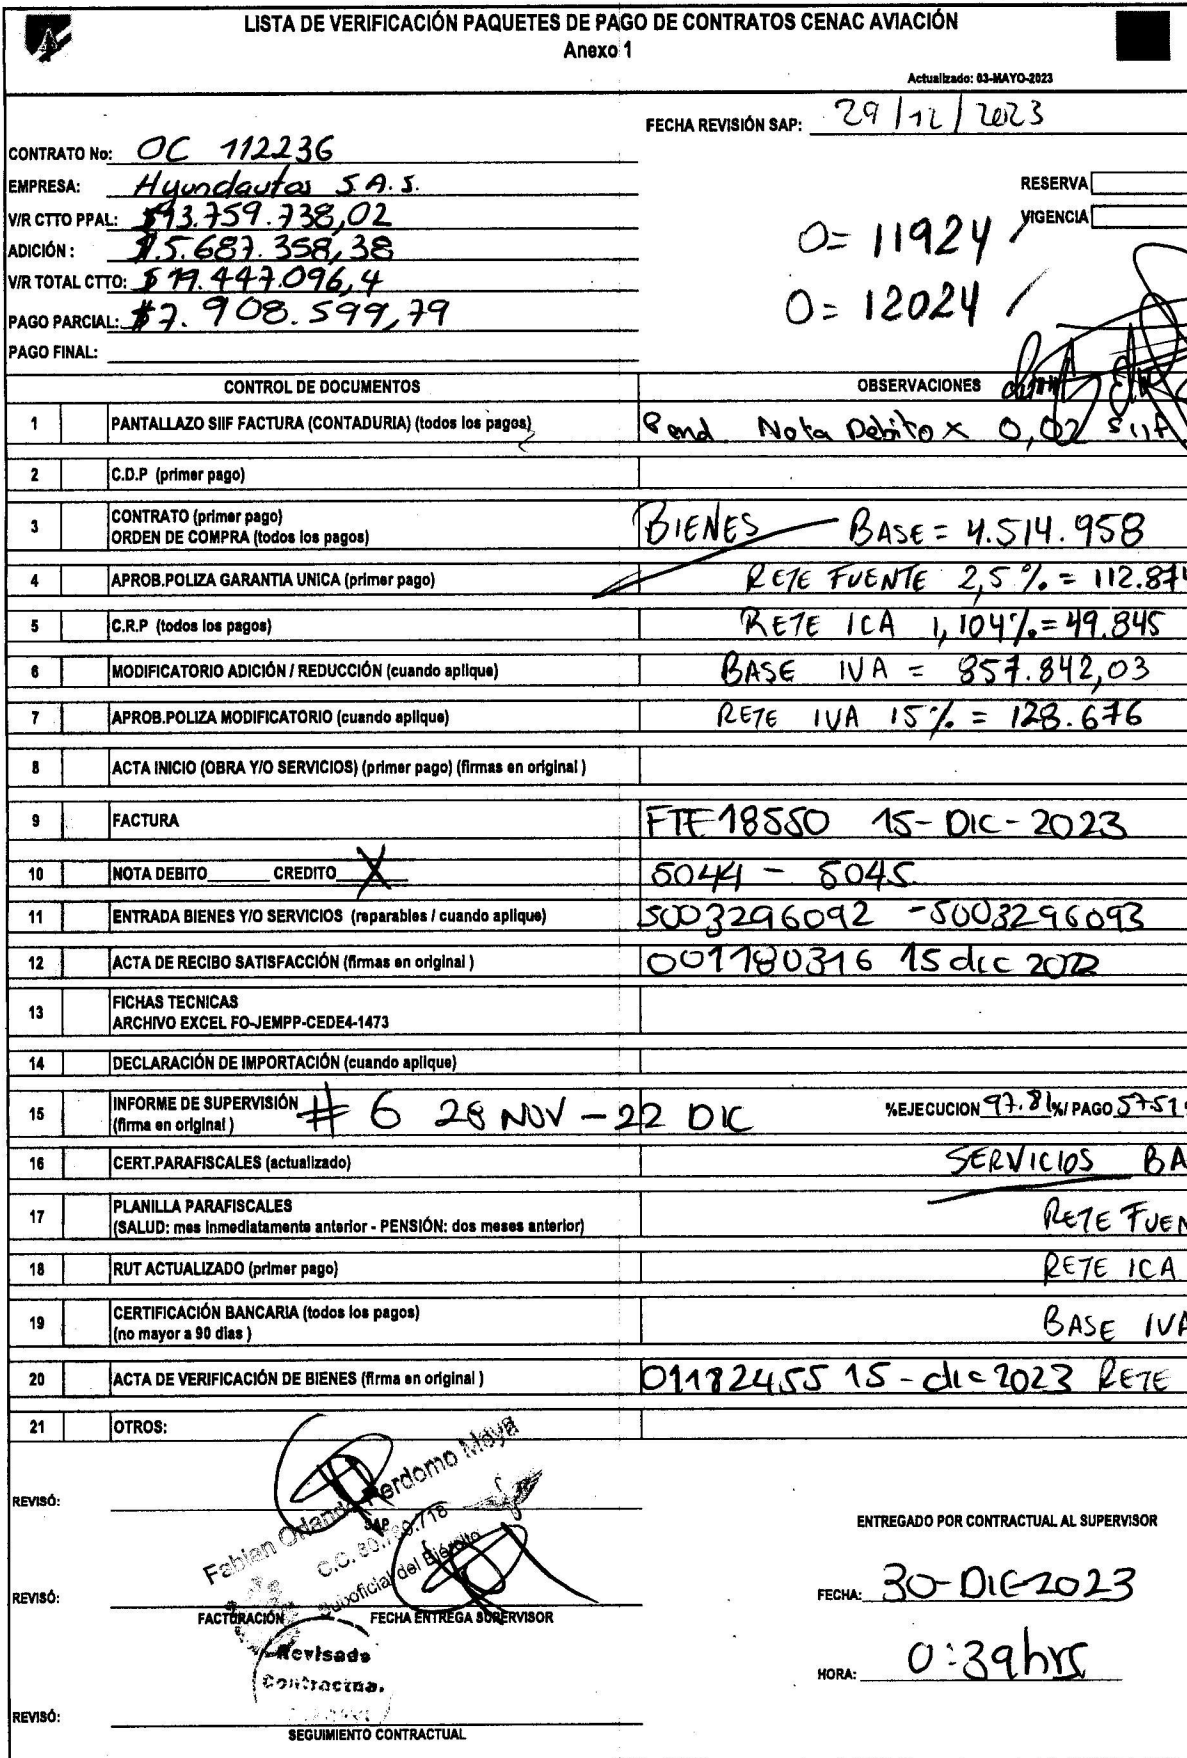 LISTA DE VERIFICACIÓN PAQUETES DE PAGO DE CONTRATOS CENAC AVIACIÓN
Anexo 1
Actualizado: 03-MAYO-2023
FECHA REVISIÓN SAP: 29/12/2023
CONTRATO No: OC 112236
EMPRESA: Hyundautos S.A.S.
RESERVA
V/R CTTO PPAL: $13.759.738,02
VIGENCIA
O= 11924 /
ADICIÓN: $5.687.358,38
V/R TOTAL CTTO: $19.447.096,4
O= 12024 /
PAGO PARCIAL: $7.908.599,79
PAGO FINAL:
CONTROL DE DOCUMENTOS OBSERVACIONES
1 PANTALLAZO SIIF FACTURA (CONTADURIA) (todos los pagos) Pend Nota Debito x 0,02 SIIF
2 C.D.P (primer pago)
3 CONTRATO (primer pago)
ORDEN DE COMPRA (todos los pagos) BIENES BASE = 4.514.958
4 APROB.POLIZA GARANTIA UNICA (primer pago) RETE FUENTE 2,5% = 112.874
5 C.R.P (todos los pagos) RETE ICA 1,104% = 49.845
6 MODIFICATORIO ADICIÓN / REDUCCIÓN (cuando aplique) BASE IVA = 857.842,03
7 APROB.POLIZA MODIFICATORIO (cuando aplique) RETE IVA 15% = 128.676
8 ACTA INICIO (OBRA Y/O SERVICIOS) (primer pago) (firmas en original )
9 FACTURA FTE18550 15-DIC-2023
10 NOTA DEBITO______ CREDITO X 5044 - 5045
11 ENTRADA BIENES Y/O SERVICIOS (reparables / cuando aplique) 5003296092 -5003296093
12 ACTA DE RECIBO SATISFACCIÓN (firmas en original ) 001180316 15 dic 2022
13 FICHAS TECNICAS
ARCHIVO EXCEL FO-JEMPP-CEDE4-1473
14 DECLARACIÓN DE IMPORTACIÓN (cuando aplique)
15 INFORME DE SUPERVISIÓN
(firma en original ) # 6 28 NOV - 22 DIC %EJECUCION 97.81%/ PAGO 57.51
16 CERT.PARAFISCALES (actualizado) SERVICIOS BA
17 PLANILLA PARAFISCALES
(SALUD: mes inmediatamente anterior - PENSIÓN: dos meses anterior) RETE FUEN
18 RUT ACTUALIZADO (primer pago) RETE ICA
19 CERTIFICACIÓN BANCARIA (todos los pagos)
(no mayor a 90 dias ) BASE IVA
20 ACTA DE VERIFICACIÓN DE BIENES (firma en original ) 01182455 15-dic 2023 RETE
21 OTROS:
REVISÓ:
SAP
Fabian Orlando Perdomo Moya
C.C. 80.789.718
Suboficial del Ejército
ENTREGADO POR CONTRACTUAL AL SUPERVISOR
REVISÓ:
FACTURACIÓN FECHA ENTREGA SUPERVISOR
FECHA: 30-DIC-2023
Revisado
Contractua.
HORA: 0:39hrs
REVISÓ:
SEGUIMIENTO CONTRACTUAL